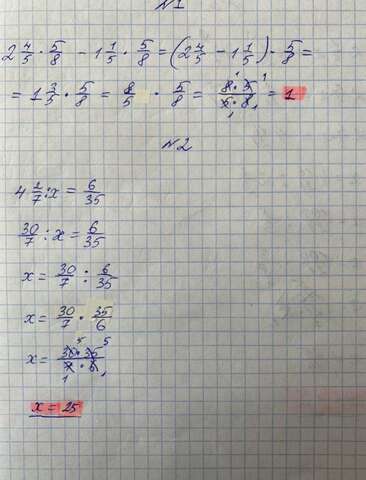 №1
2 4/5 · 5/8 - 1 1/5 · 5/8 = (2 4/5 - 1 1/5) · 5/8 =
= 1 3/5 · 5/8 = 8/5 · 5/8 = 8·5/5·8 = 1
№2
4 2/7 : x = 6/35
30/7 : x = 6/35
x = 30/7 : 6/35
x = 30/7 · 35/6
x = 30·35/7·6
x = 25